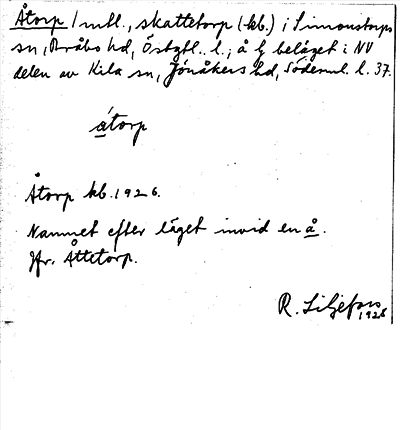 Åtorp 1 mtl., skattetorp (kb.) i Simonstorps
sn, Bråbo hd, Östgtl. l., å ½ beläget i NV
delen av Kila sn, Jönåkers hd, Söderml. l. 37.
åtorp
Åtorp kb. 1926.
Namnet efter läget invid en å.
Jfr. Åttetorp.
R. Liljefors
1928